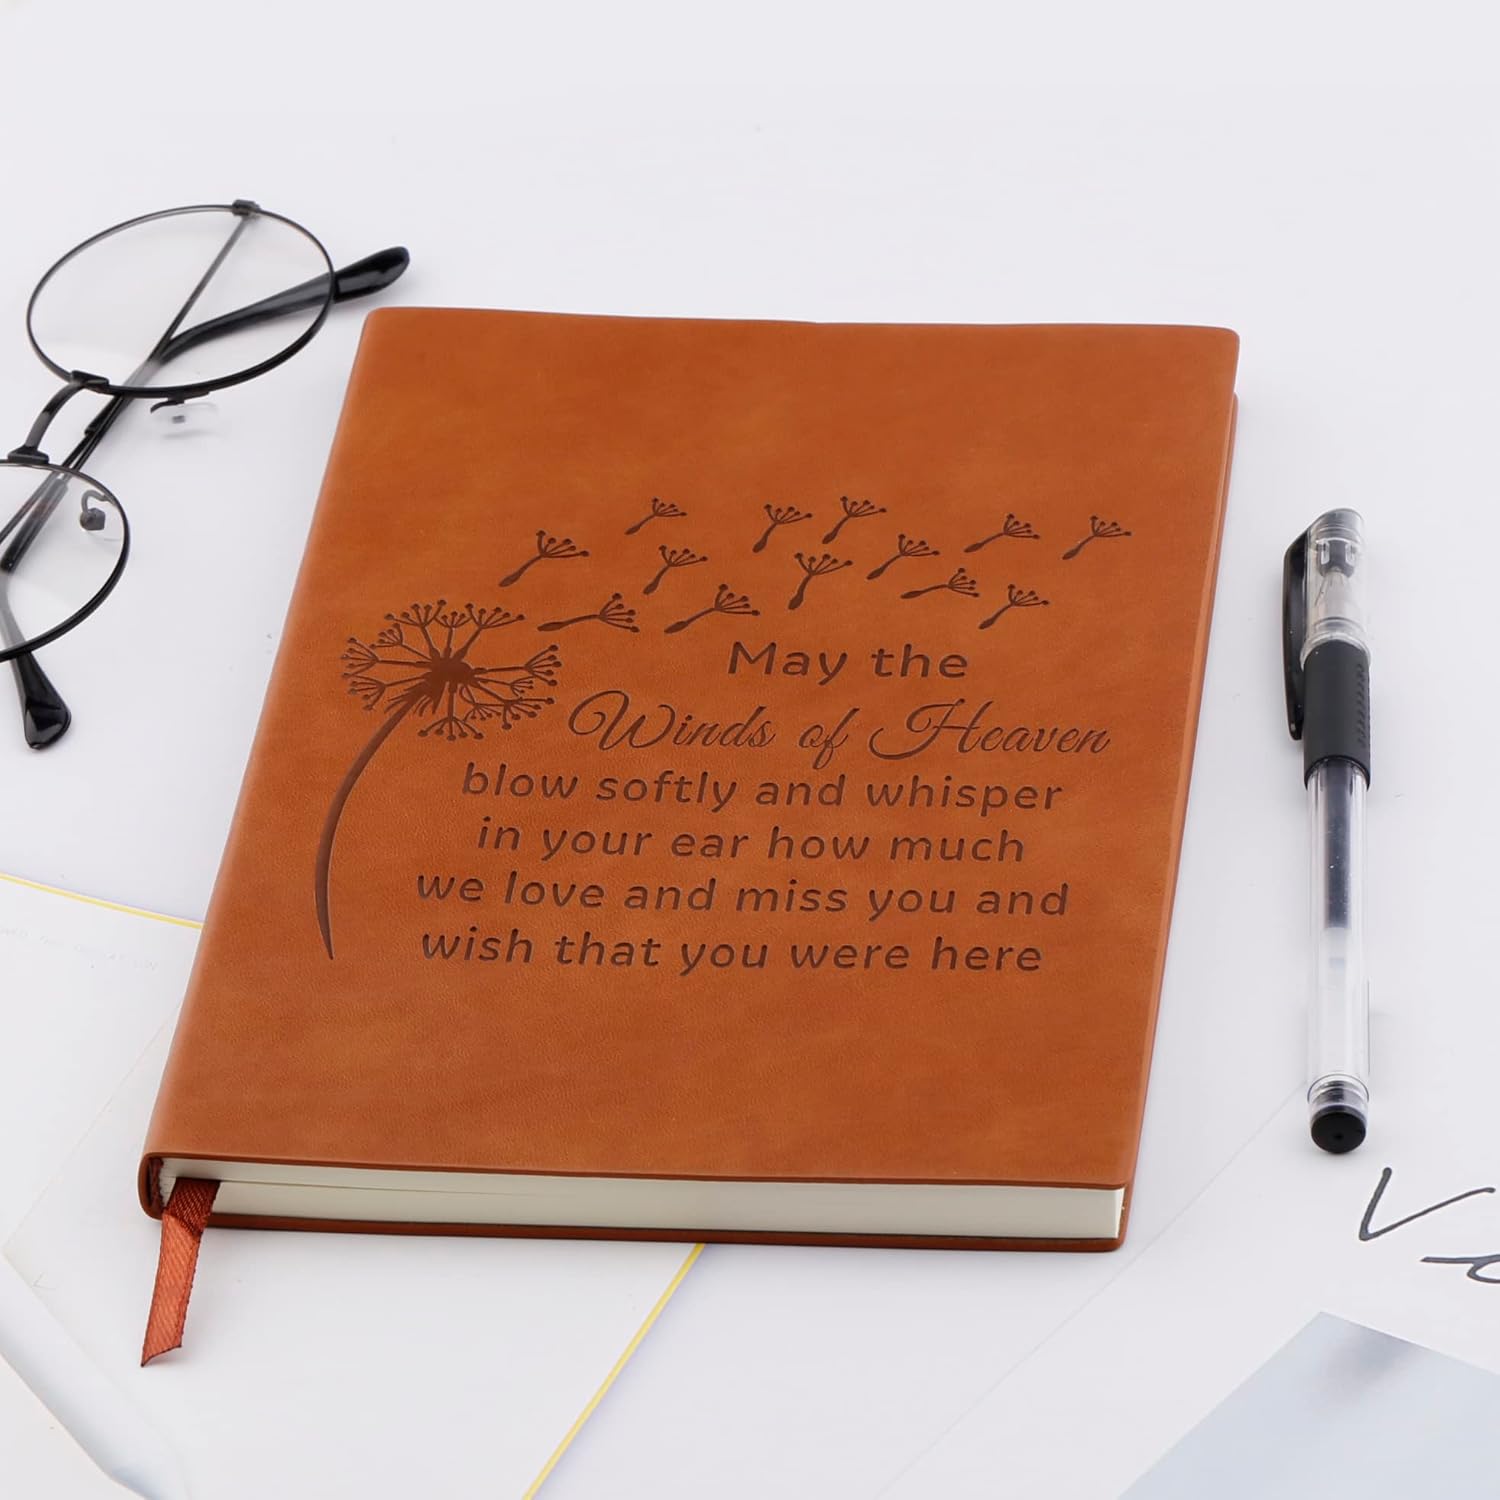 May the
Winds of Heaven
blow softly and whisper
in your ear how much
we love and miss you and
wish that you were here